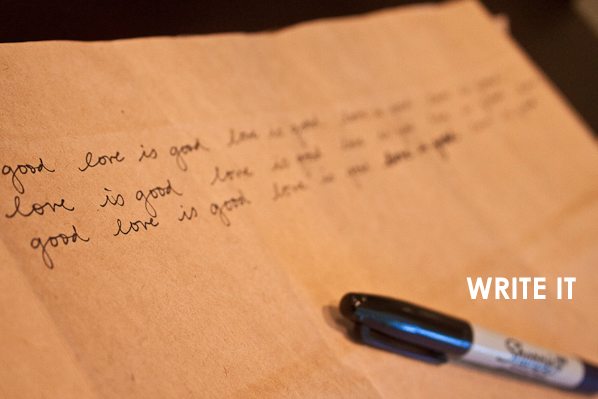 good love is good love is good love is good
love is good love is good love is good
good love is good love is good love is good
WRITE IT
Sharpie